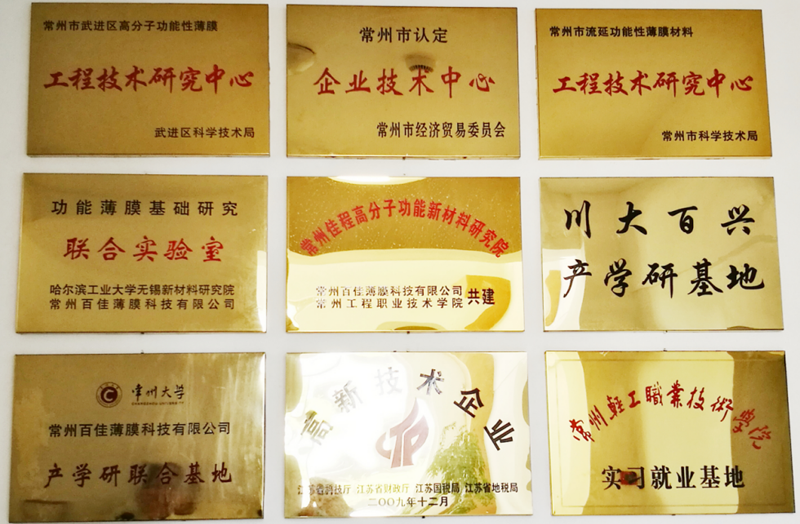 常州市武进区高分子功能性薄膜
工程技术研究中心
武进区科学技术局
常州市认定
企业技术中心
常州市经济贸易委员会
常州市流延功能性薄膜材料
工程技术研究中心
常州市科学技术局
功能薄膜基础研究
联合实验室
哈尔滨工业大学无锡新材料研究院
常州百佳薄膜科技有限公司
常州佳程高分子功能新材料研究院
常州百佳薄膜科技有限公司
常州工程职业技术学院
共建
川大百兴
产学研基地
常州大学
常州百佳薄膜科技有限公司
产学研联合基地
高新技术企业
江苏省科技厅 江苏省财政厅 江苏国税局 江苏省地税局
二〇〇九年十二月
常州輕工職業技術學院
实习就业基地